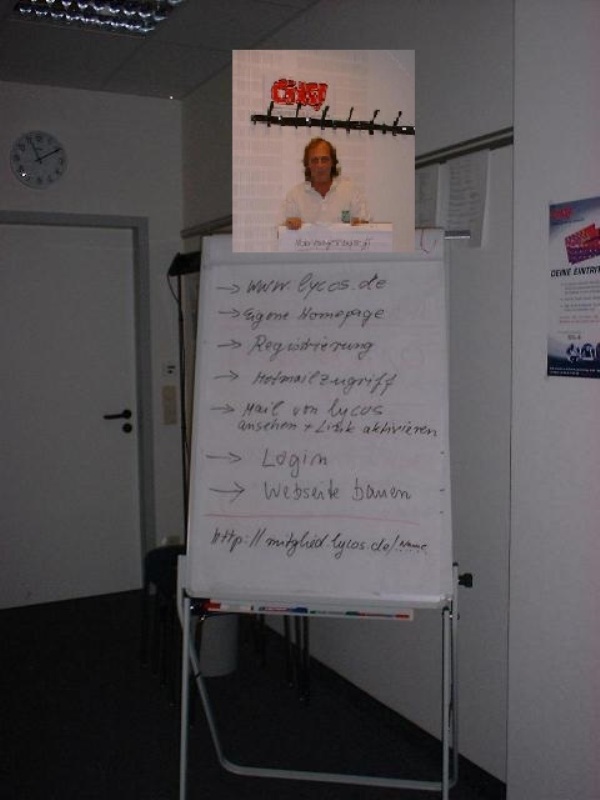 → www.lycos.de
→ Eigene Homepage
→ Registrierung
→ Hotmailzugriff
→ Mail von lycos
ansehen + Link aktivieren
→ Login
→ Webseite bauen
http://mitglied.lycos.de/Name
DEINE EINTRIT